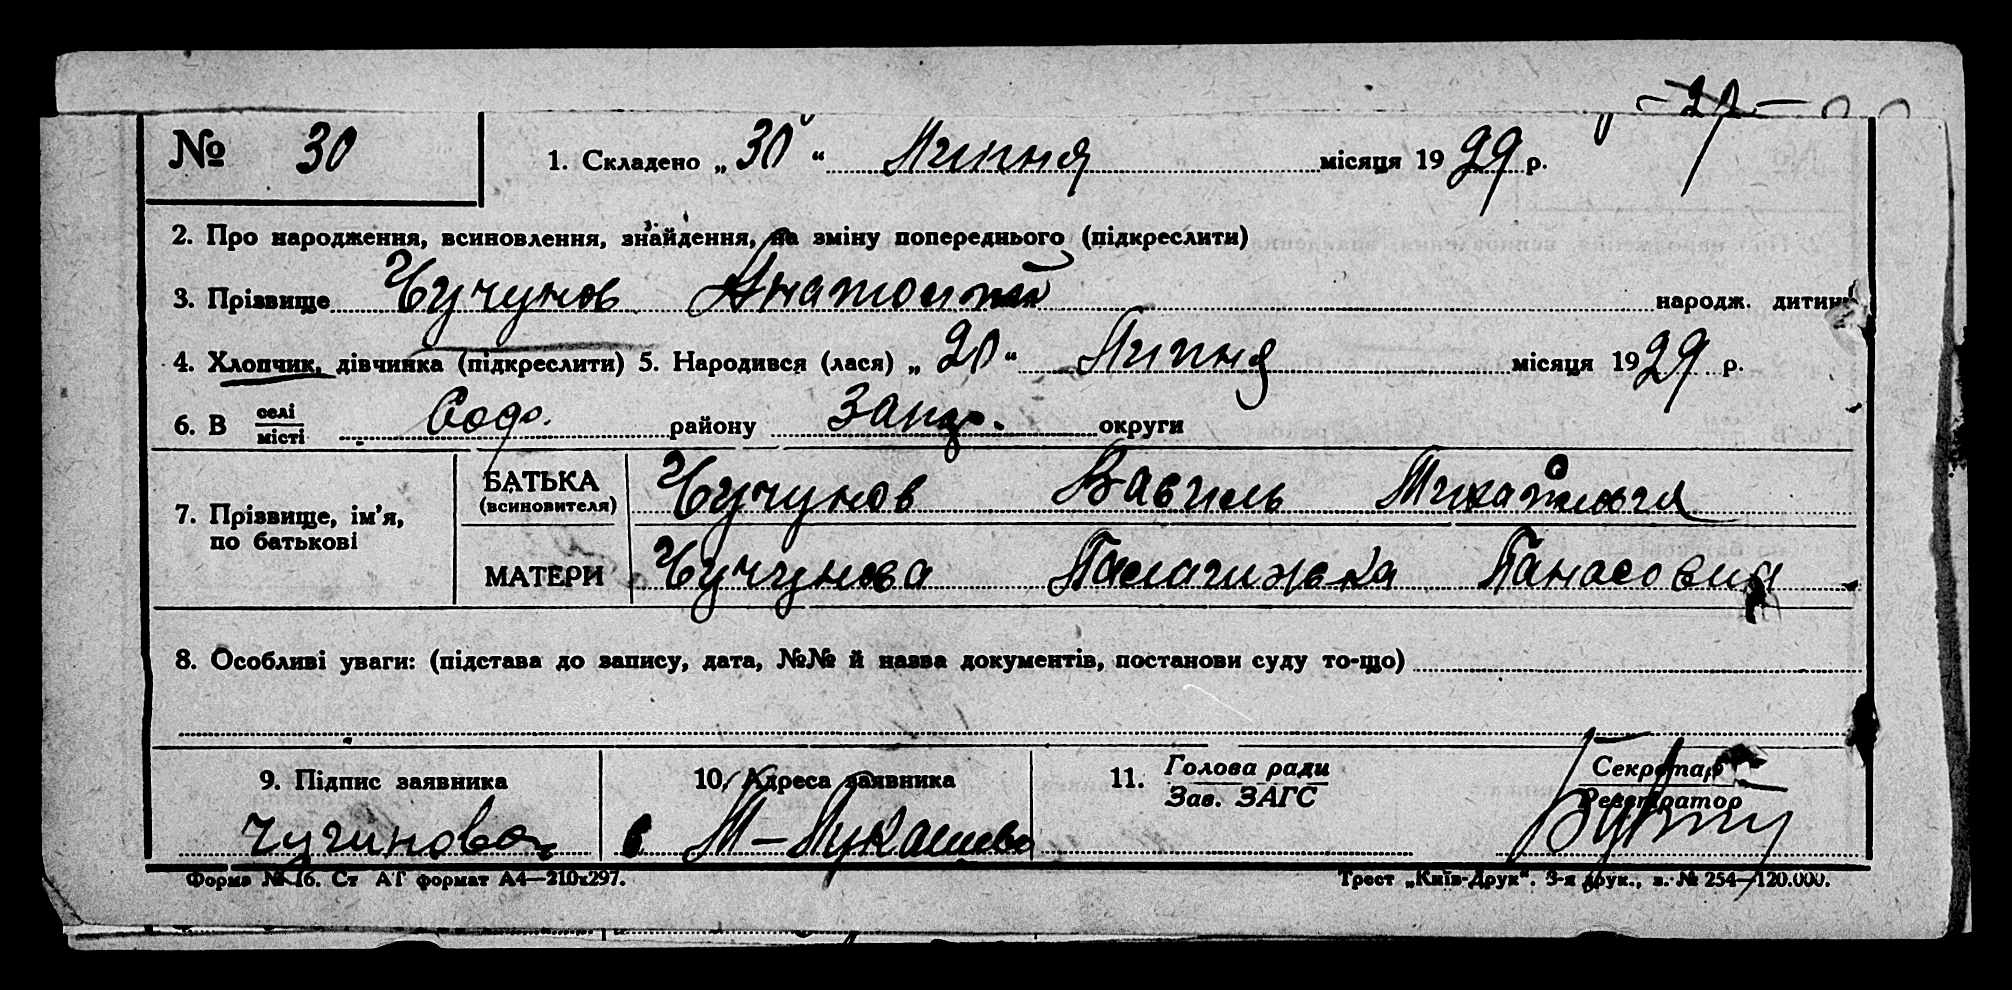 - 27 -
№ 30
1. Складено „ 30 “ Липня місяця 19 29 р.
2. Про народження, всиновлення, знайдення, на зміну попереднього (підкреслити)
3. Прізвище Чучунов Анатолій народж. дитини
4. Хлопчик, дівчинка (підкреслити) 5. Народився (лася) „ 20 “ Липня місяця 19 29 р.
6. В селі місті Соф. району Запор. округи
7. Прізвище, ім’я, по батькові
БАТЬКА (всиновителя) Чучунов Василь Михайлович
МАТЕРИ Чучунова Палагижка Панасовна
8. Особливі уваги: (підстава до запису, дата, №№ й назва документів, постанови суду то-що)
9. Підпис заявника 10. Адреса заявника 11. Голова ради Зав. ЗАГС Секретар Реєстратор
Чучинова в М-Лукашево
Форма № 16. Ст АТ формат А4—210х297. Трест „Київ-Друк“. 3-я друк., з. № 254—120.000.